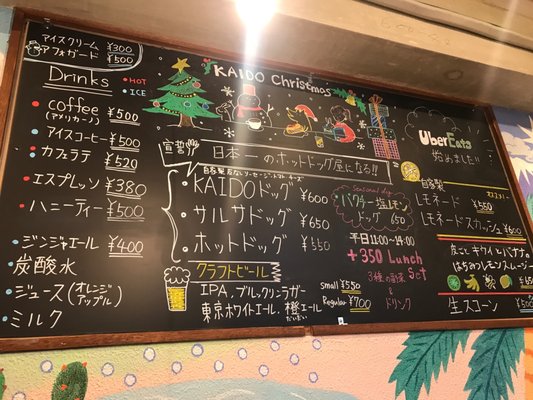 アイスクリーム ¥300
アフォガード ¥500
Drinks
HOT
ICE
coffee ¥500
(アメリカーノ)
アイスコーヒー ¥500
カフェラテ ¥520
エスプレッソ ¥380
ハニーティー ¥500
ジンジャエール ¥400
炭酸水
ジュース(オレンジ
アップル)
ミルク
KAIDO Christmas
宣誓!!
日本一のホットドッグ屋になる!!
KAIDOドッグ ¥600
サルサドッグ ¥650
ホットドッグ ¥550
クラフトビール
IPA、ブルックリンラガー
東京ホワイトエール、橙エール
small ¥550
Regular ¥700
Seasonal dog
パクチー塩レモン
ドッグ 650
平日 11:00-14:00
+350 Lunch
Set
3種の副菜
&
ドリンク
Uber Eats
始めました!!
自家製
レモネード ¥550
レモネードスカッシュ ¥600
皮ごとキウイとバナナ
はちみつレモンスムージー
生スコーン ¥500